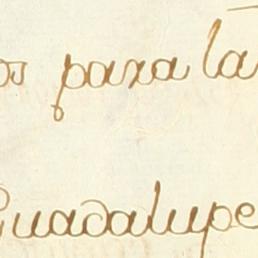 para la
Guadalupe